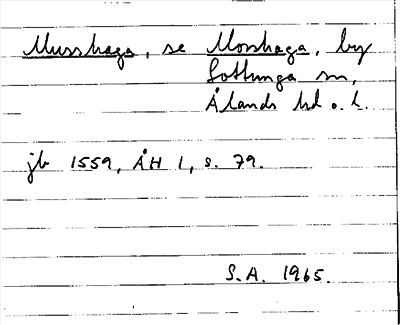 Musshaga, se Mosshaga, by
Sottunga sn,
Ålands hd o. L.
jb 1559, ÅH 1, s. 79.
S.A. 1965.